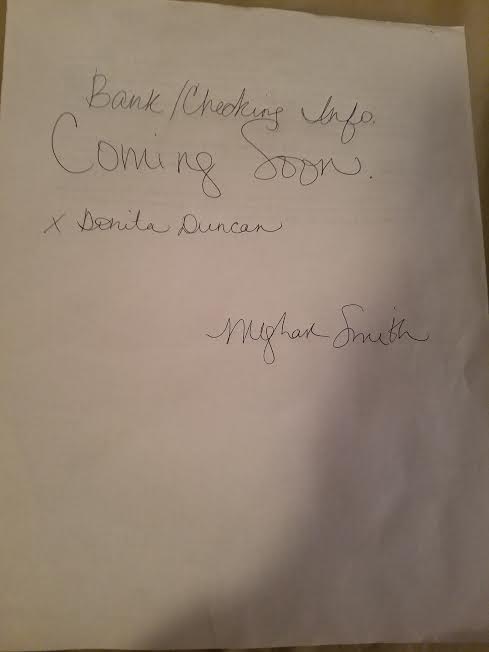 Bank/Checking Info.
Coming Soon.
x Donita Duncan
Meghan Smith